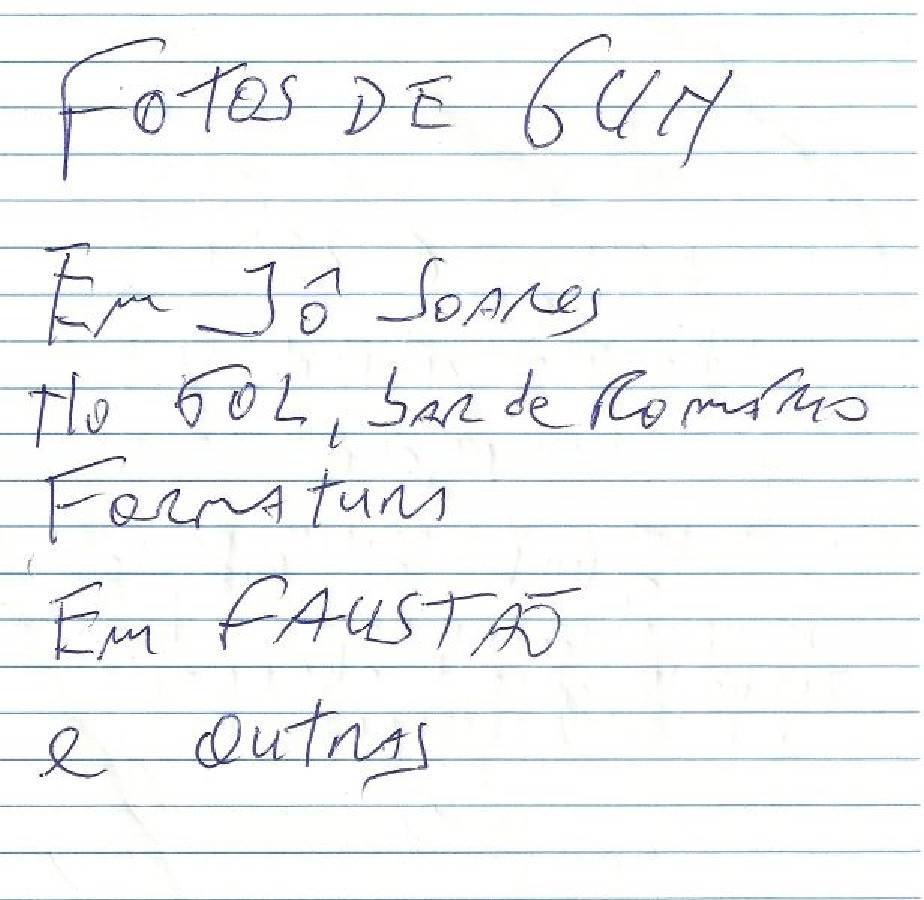 FOTOS DE GUN
Em JÔ SOARes
No GOL, bAR de RomáRio
FORMATURA
Em FAUSTÃO
e OUTRAS